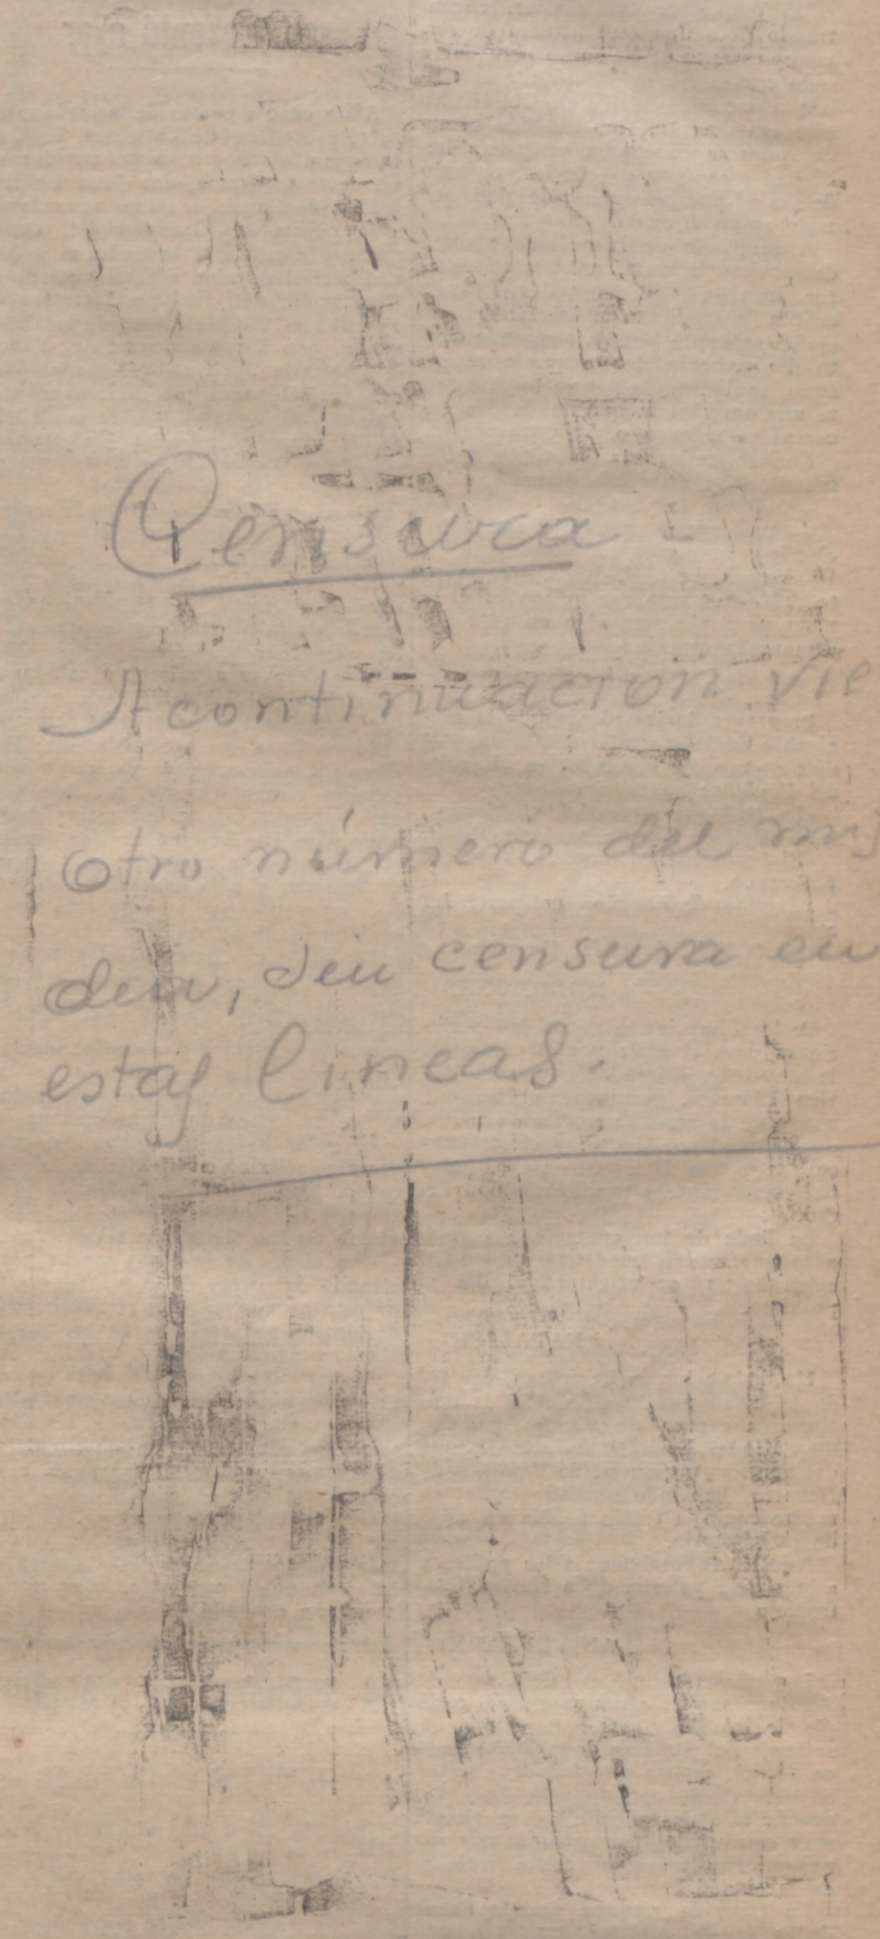 Censura
A continuacion vie
otro número del mis
dia, sin censura en
estas lineas.